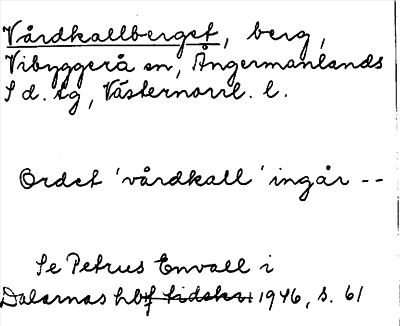 Vårdkallberget, berg,
Vibyggerå sn, Ångermanlands
S d. tg, Västernorrl. l.
Ordet 'vårdkall' ingår --
Se Petrus Envall i
Dalarnas hbf tidskr. 1946, s. 61